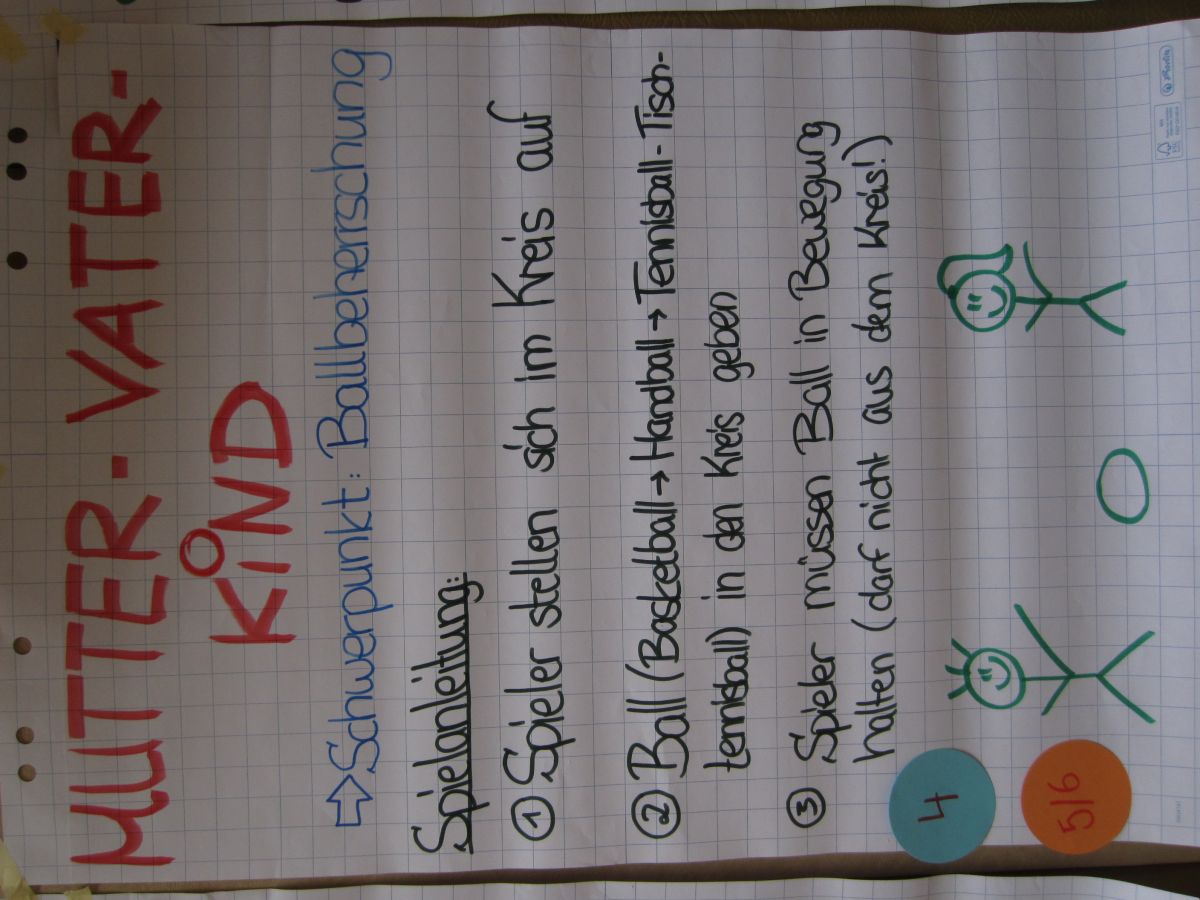 MUTTER-VATER-
KIND
⇨ Schwerpunkt: Ballbeherrschung
Spielanleitung:
① Spieler stellen sich im Kreis auf
② Ball (Basketball → Handball → Tennisball - Tisch-
tennisball) in den Kreis geben
③ Spieler müssen Ball in Bewegung
halten (darf nicht aus dem Kreis!)
4
5/6